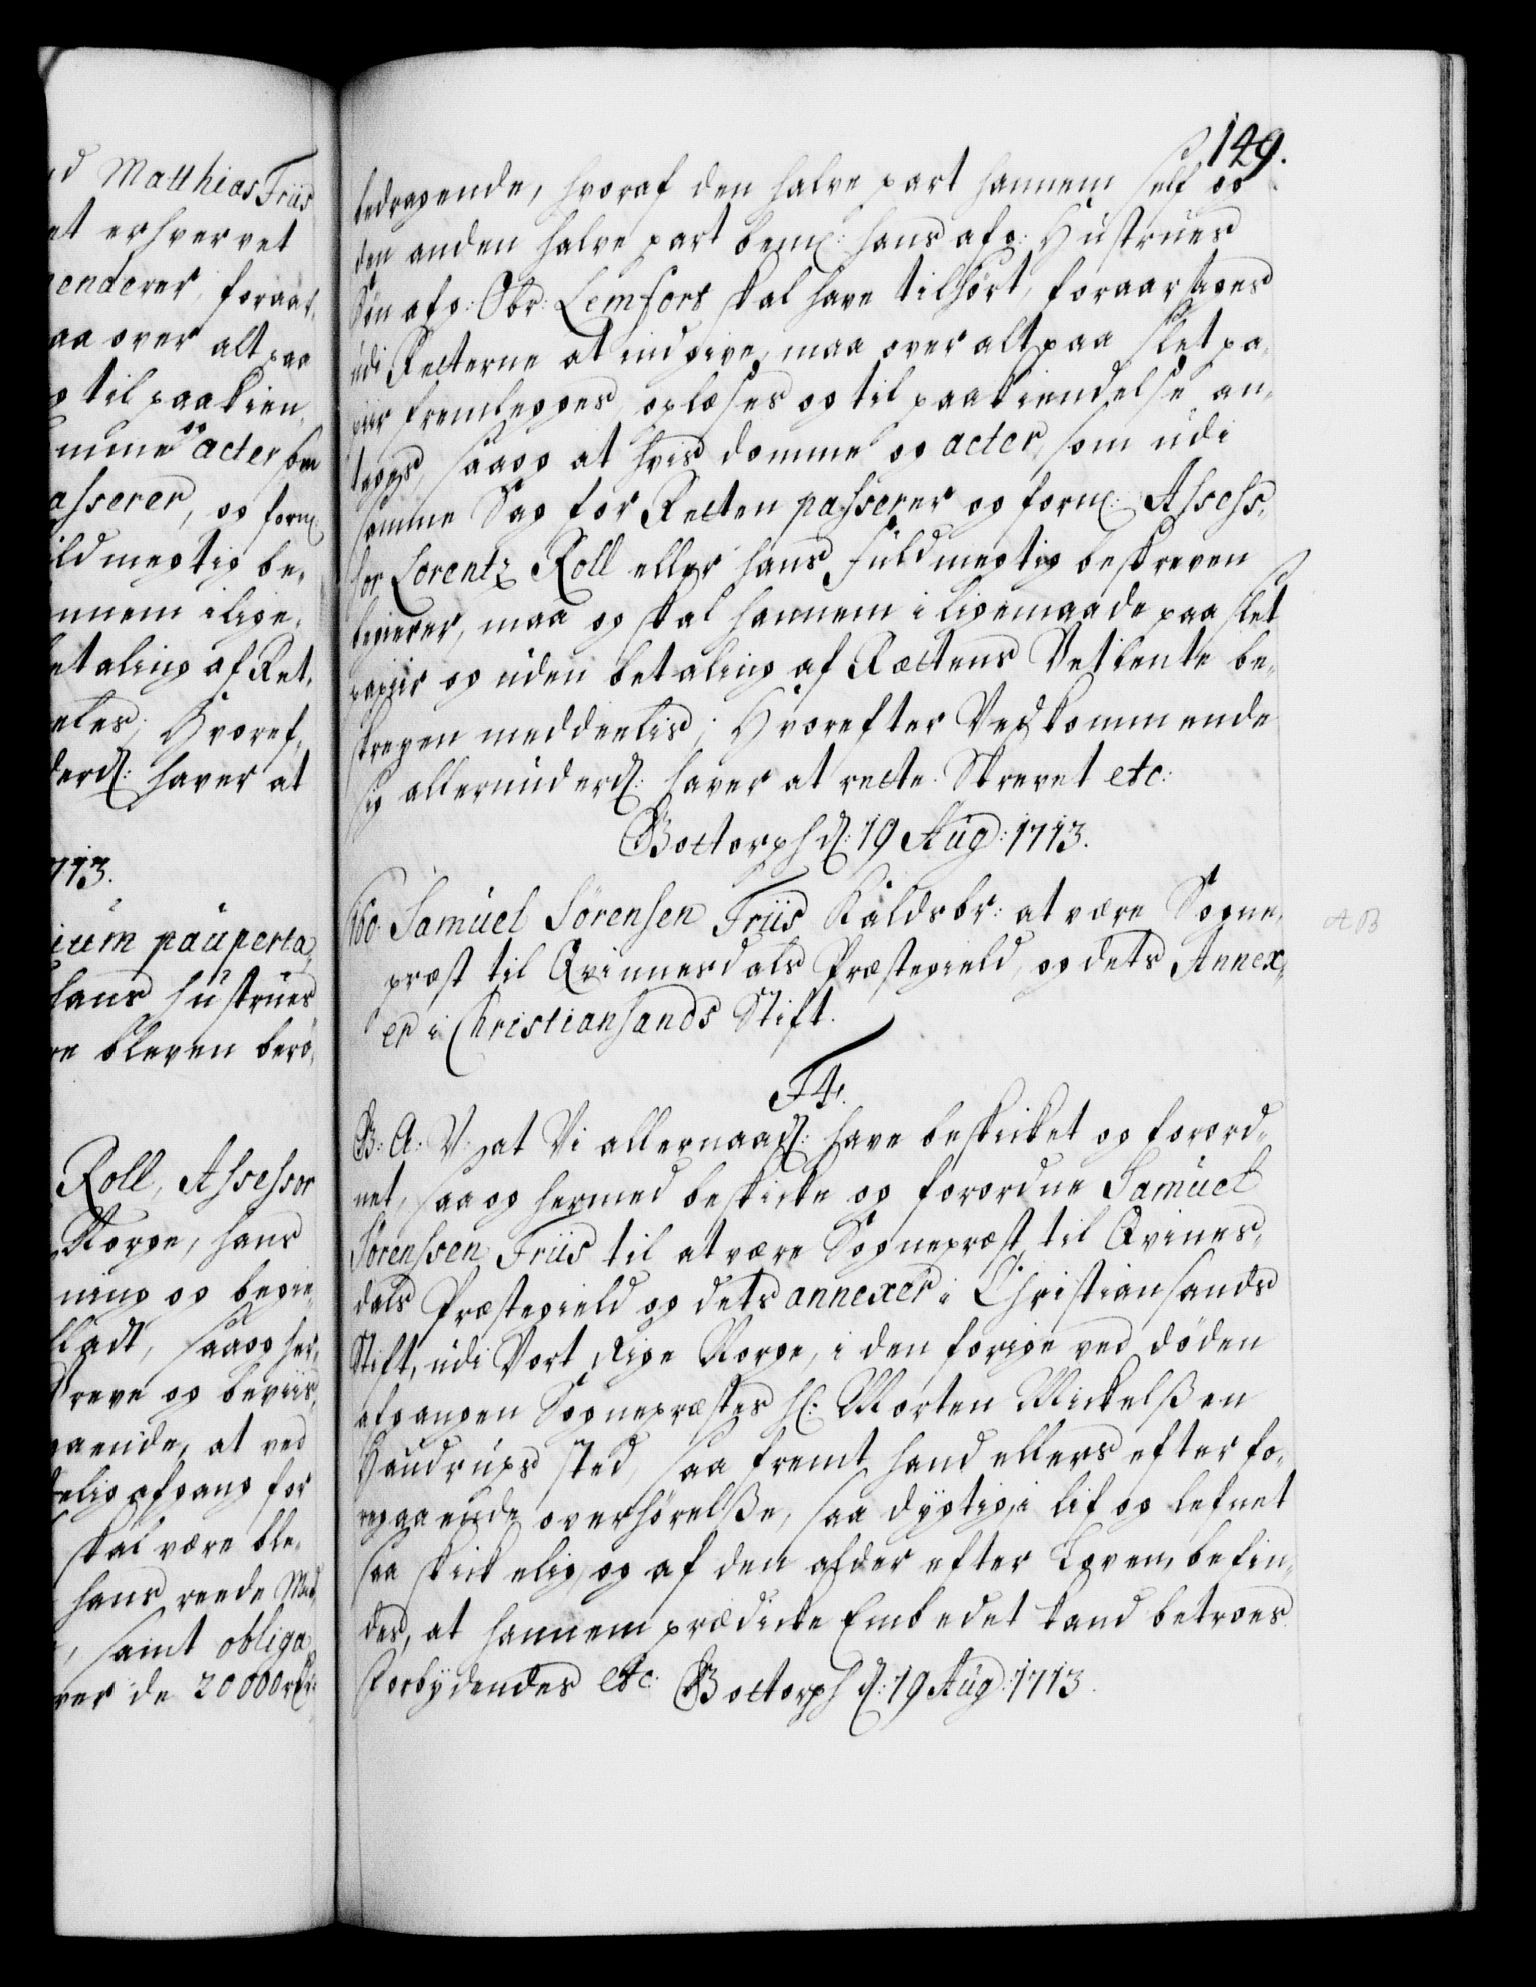 d Matthias Friis
et erhvervet
penderer, foraar
aa over alt paa
g til paakien
mme og acter som
asserer, og form:
ldmegtig be-
nnem i lige-
etaling af Ret-
eles; Hvoref-
derd: haver at
713.
ium pauperta
hans hustrues
re bleven berø-
Roll, Assessor
Norge, hans
ning og begie-
lladt, saa og her-
Breve og beviis
aaende, at ved
elig afgang for
skal være ble-
hans reede
, samt obliga
ver de 20000 rdr:
149.
bedragende, hvoraf den halve part hannem self og
den anden halve part bem: hans afg: Hustrues
Søn afg: Obr: Lemfors skal have tilhørt, foraarsages
udi Retterne at indgive, maa over alt paa slet pa-
piir fremlegges, oplæses og til paakiendelse an-
tages, saa og at hvis domme og acter, som udi
samme Sag for Retten passerer og form: Assess-
sor Lorentz Roll eller hans fuldmegtig beskreven
begierer, maa og skal hannem i ligemaade paa slet
papiir og uden betaling af Rættens Vetkente be-
skreven meddeelis; Hvorefter Vedkommende
sig allerunderd: haver at rette. Skrevet etc:
Gottorph d: 19 Aug: 1713.
160. Samuel Sørensen Friis Kaldsbr: at være Sogne-
præst til Qvinnesdals Præstegield, og dets Annex-
er i Christiansands Stift.
A B
F4.
G: A: V: at Vi allernaad: have beskicket og forord-
net, saa og hermed beskicke og forordne Samuel
Sørenssen Friis til at være Sognepræst til Qvines-
dals Præstegield og dets annexer i Christiansands
Stift, udi Vort Rige Norge, i den forige ved døden
afgangen Sognepræstes H: Morten Mickelßen
Haudrups sted, saa fremt hand ellers efter fo-
regaaende overhørelße, saa dygtig, i lif og lefnet
saa skickelig, og af den alder efter Loven, befin-
des, at hannem prædicke Embedet kand betroes.
Forbydendes etc: Gottorph d: 19 Aug: 1713.